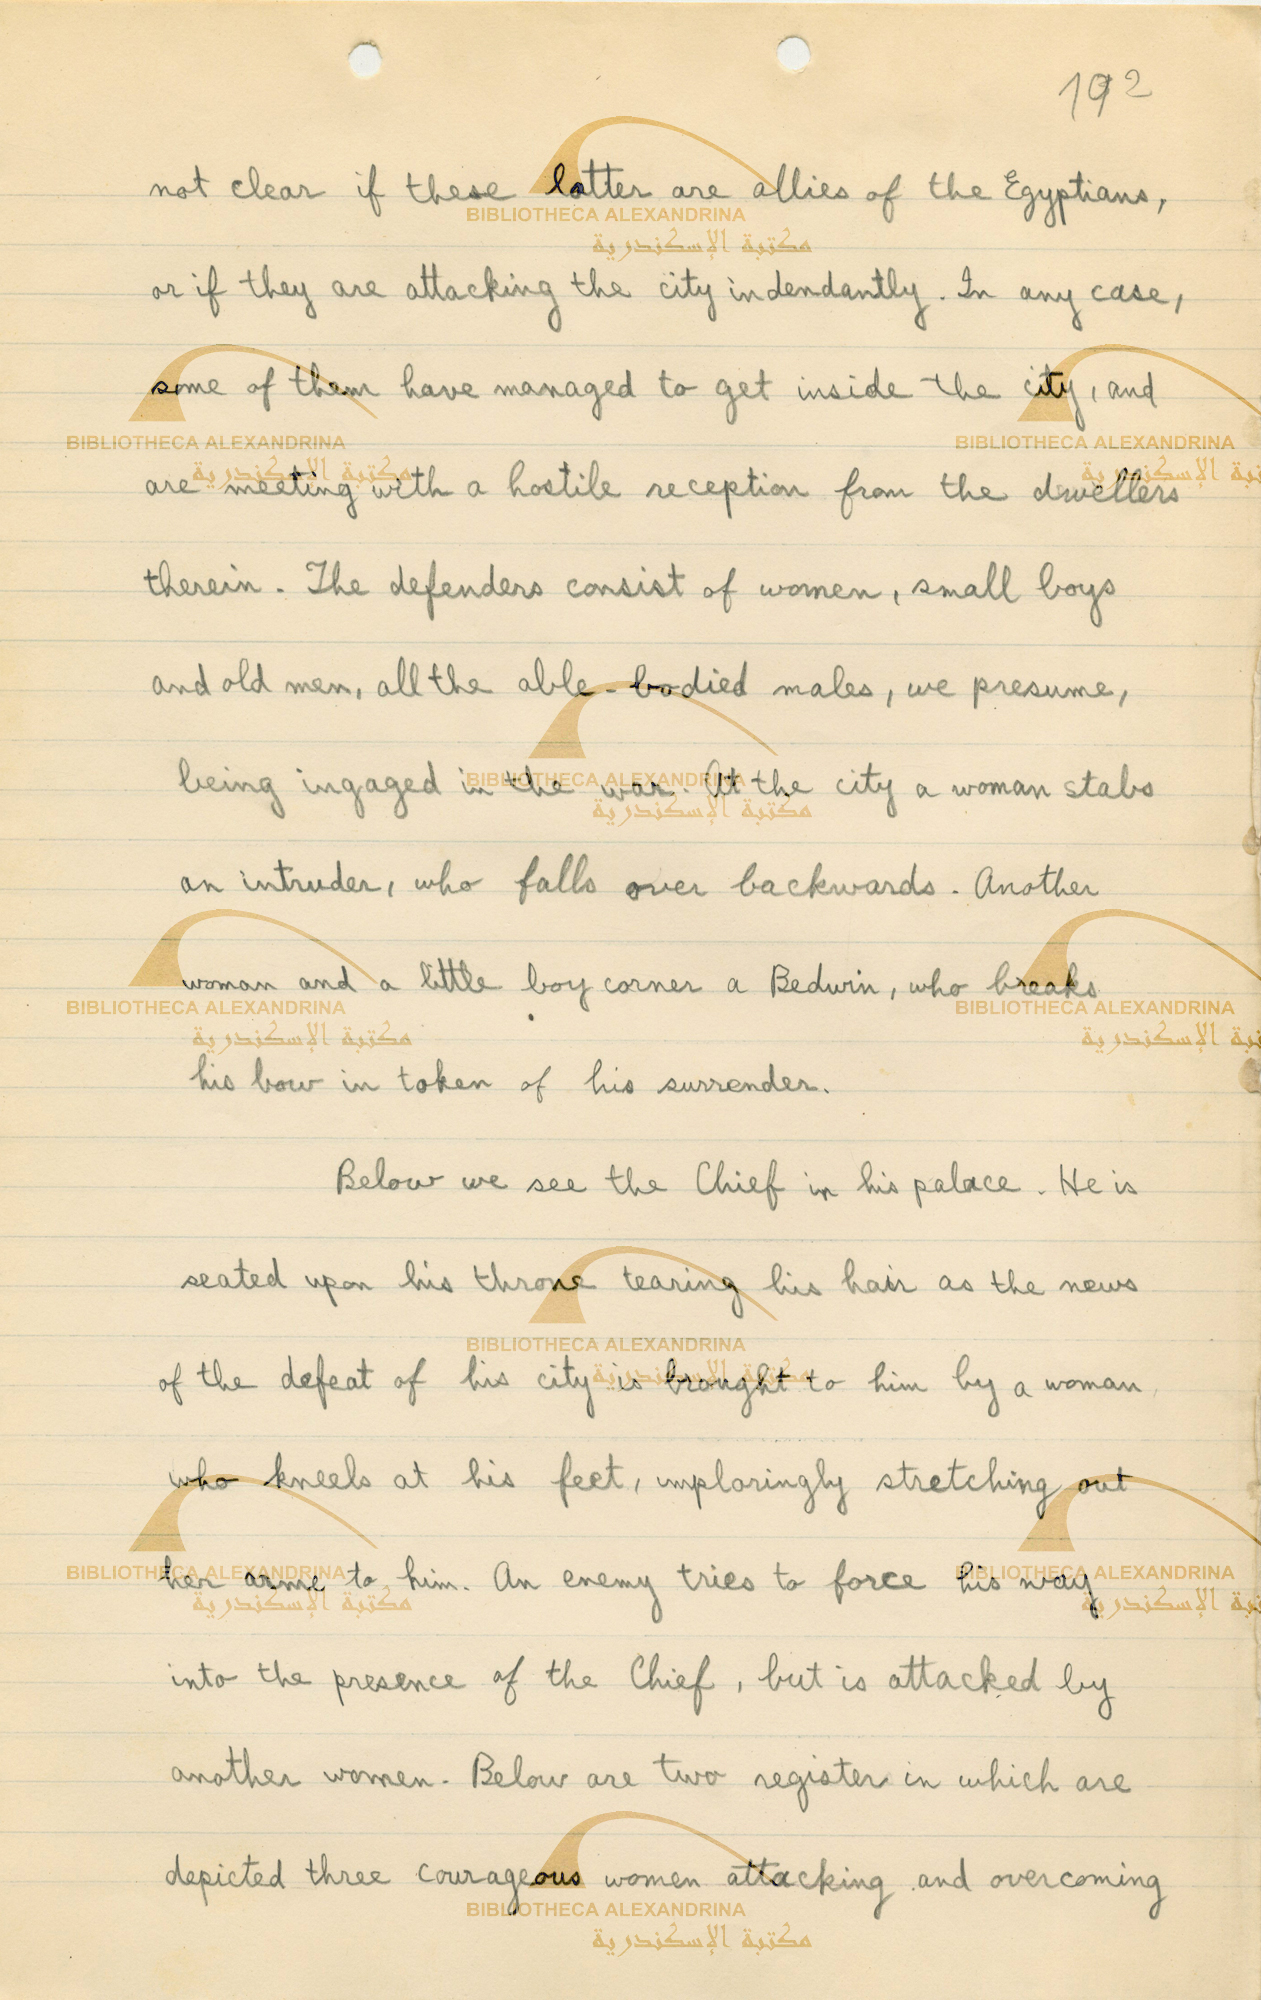 192
not clear if these latter are allies of the Egyptians,
or if they are attacking the city indendantly. In any case,
some of them have managed to get inside the city, and
are meeting with a hostile reception from the dwellers
therein. The defenders consist of women, small boys
and old men, all the able-bodied males, we presume,
being ingaged in the war. At the city a woman stabs
an intruder, who falls over backwards. Another
woman and a little boy corner a Bedwin, who breaks
his bow in token of his surrender.
Below we see the Chief in his palace. He is
seated upon his throne tearing his hair as the news
of the defeat of his city is brought to him by a woman
who kneels at his feet, imploringly stretching out
her arms to him. An enemy tries to force his way
into the presence of the Chief, but is attacked by
another women. Below are two register in which are
depicted three courageous women attacking and overcoming
BIBLIOTHECA ALEXANDRINA
مكتبة الإسكندرية